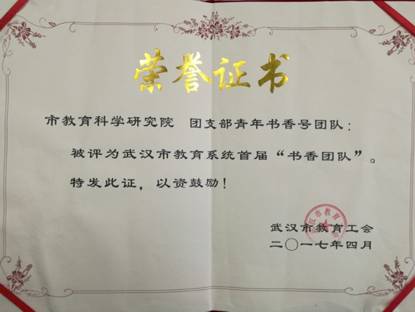 荣誉证书
市教育科学研究院 团支部青年书香号团队：
被评为武汉市教育系统首届“书香团队”。
特发此证，以资鼓励！
武汉市教育工会
二〇一七年四月